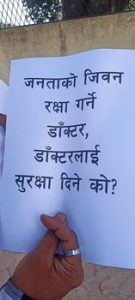 जनताको जिवन
रक्षा गर्ने
डाँक्टर,
डाँक्टरलाई
सुरक्षा दिने को?